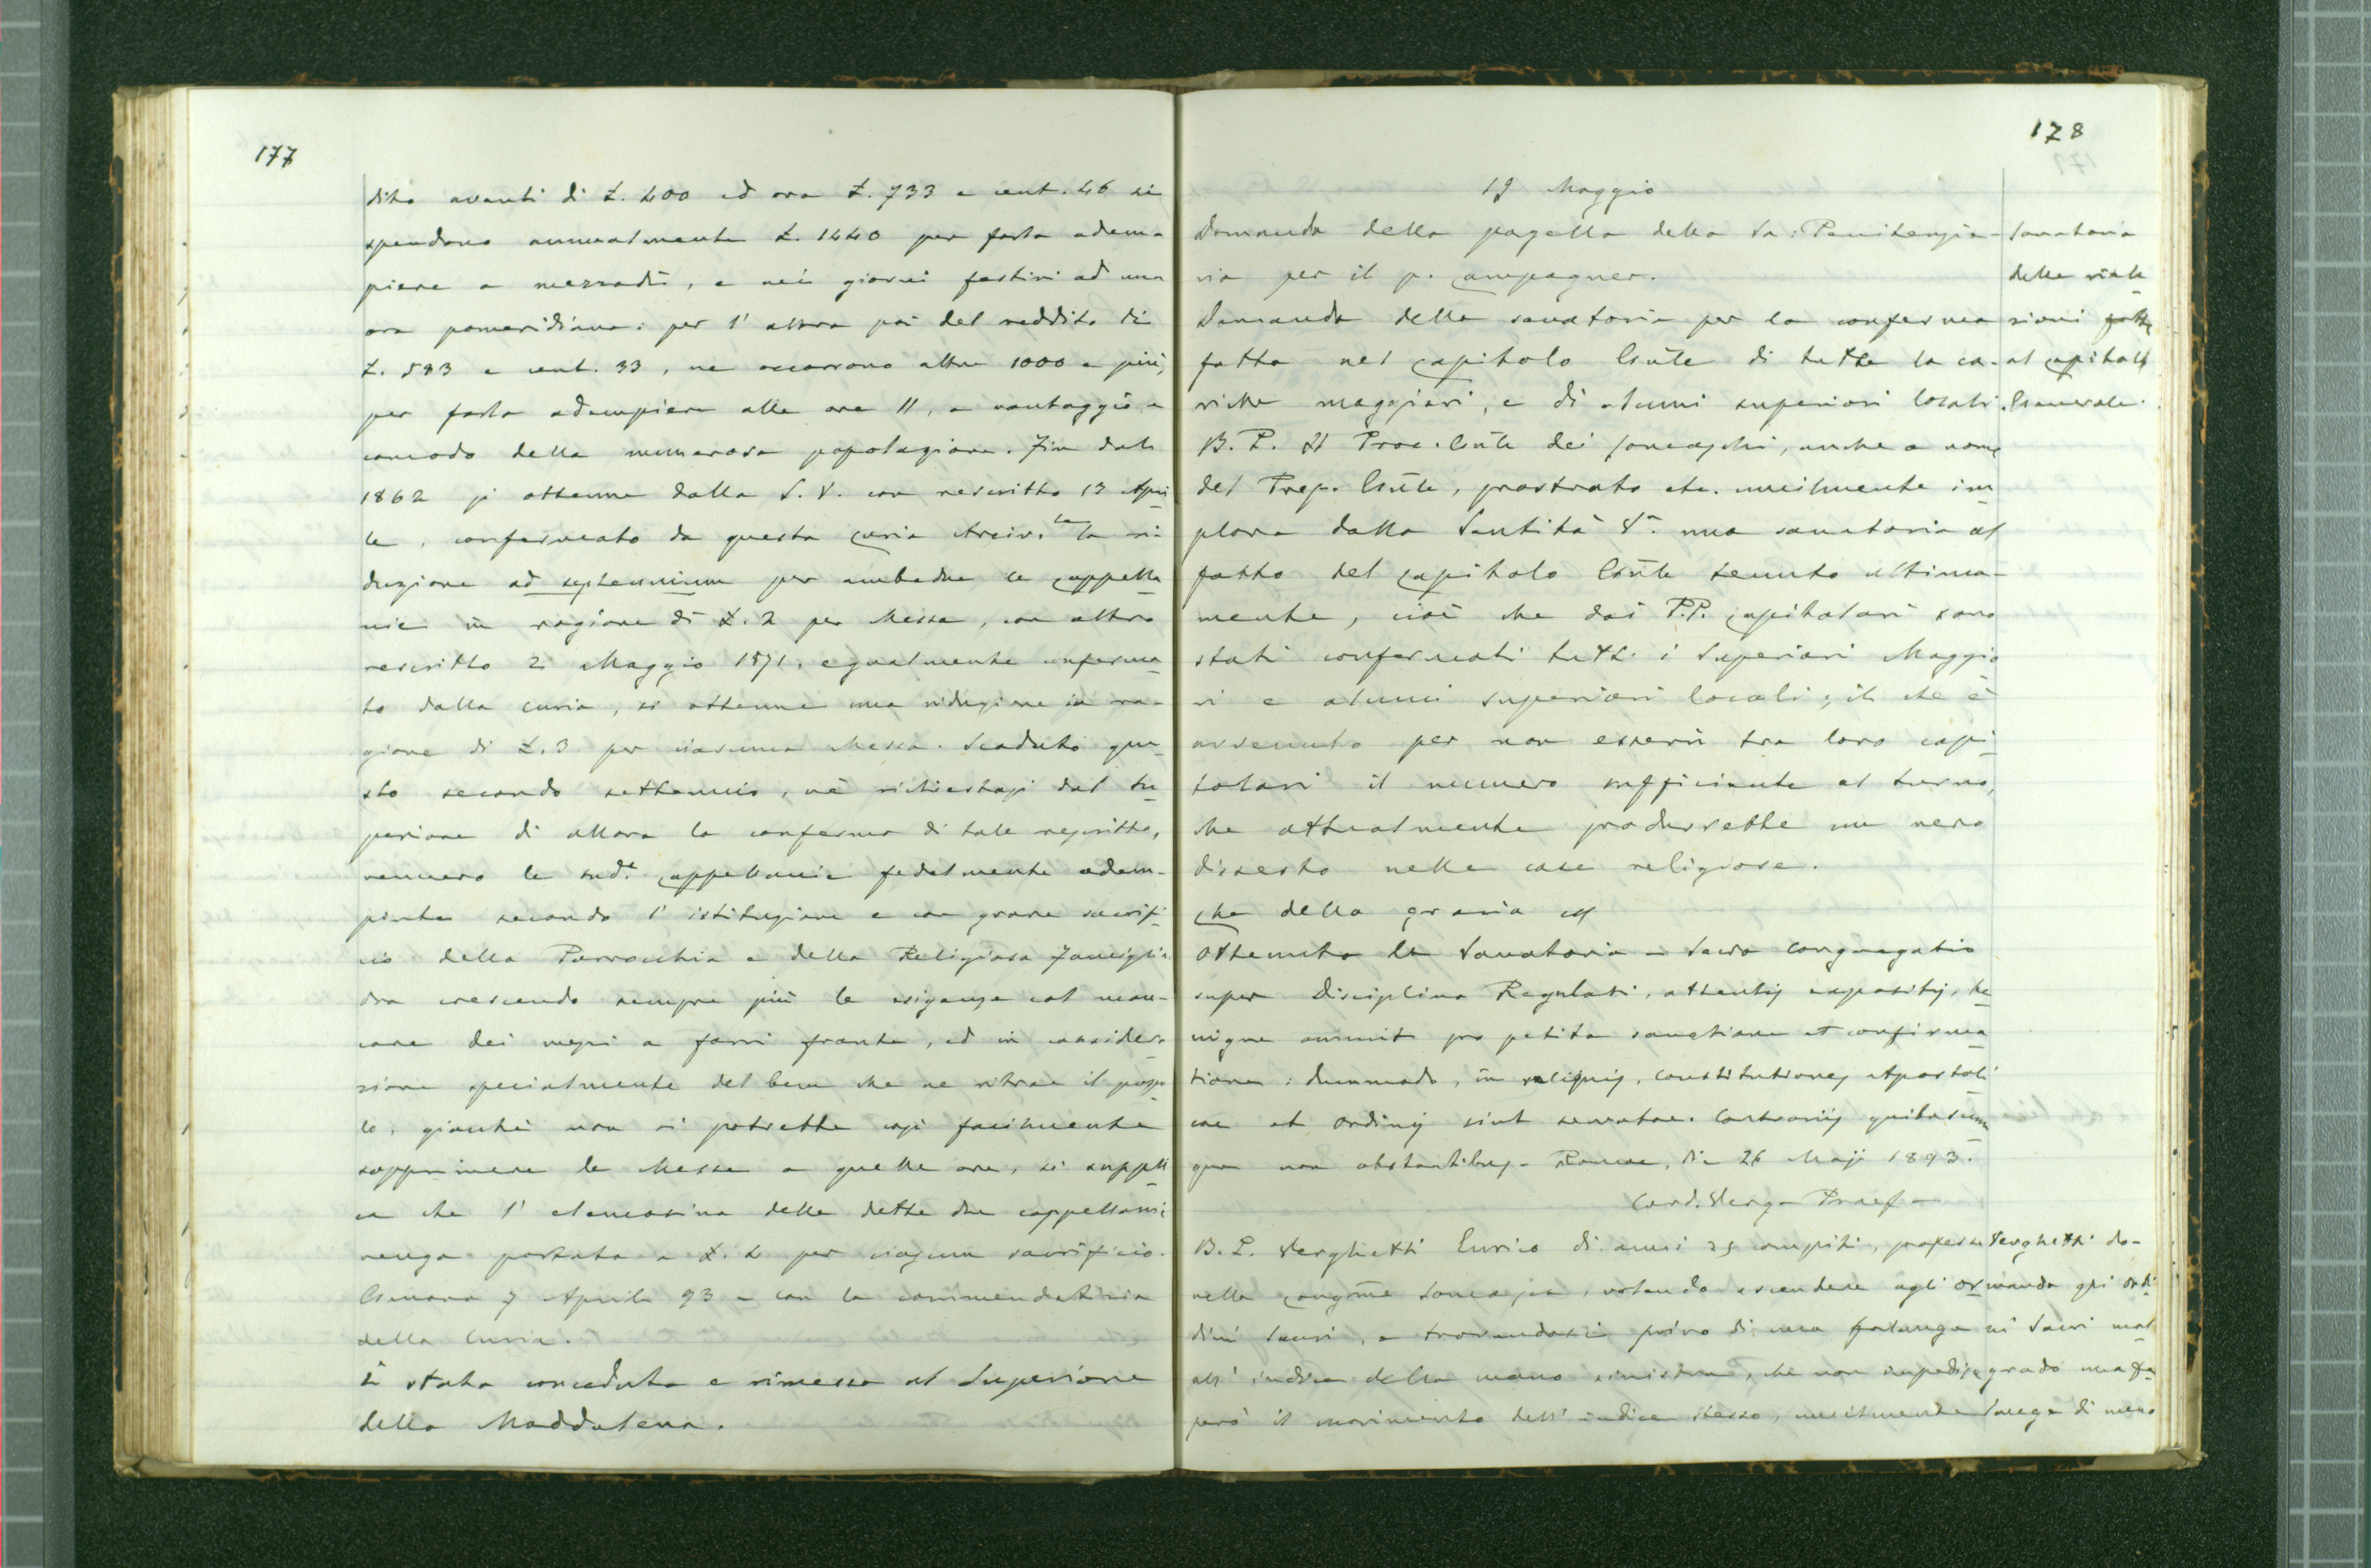 177
dito avanti di L. 400 ed ora L. 733 e cent. 46 si
spendono annualmente L. 1440 per farla adem-
piere a mezzodì, e nei giorni festivi ad una
ora pomeridiana: per l'altra poi del reddito di
L. 583 e cent. 33, ne occorrono altre 1000 e più,
per farla adempiere alle ore 11, a vantaggio e
comodo della numerosa popolazione. Fin dal
1862 si ottenne dalla S. V. con rescritto 13 Apri
le, confermato da questa Curia Arciv.le la ri
duzione ad septennium per ambedue le Cappella
nie in ragione di L. 2 per Messa, con altro
rescritto 2 Maggio 1871, egualmente conferma
to dalla Curia, si ottenne una riduzione in ra-
gione di L. 3 per ciascuna Messa. Scaduto que
sto secondo settennio, nè richiestasi dal Su
periore di allora la conferma di tale rescritto,
vennero le sudd.e Cappellanie fedelmente adem-
piute secondo l'istituzione e con grave sacrifi
cio della Parrocchia e della Religiosa Famiglia
Ora crescendo sempre più le esigenze col man-
care dei mezzi a farvi fronte, ed in considera
zione specialmente del bene che ne ritrae il popo
lo, giacchè non si potrebbe così facilmente
sopprimere le Messe a quelle ore, si suppli
ca che l'elemosina delle dette due Cappellanie
venga portata a L. 4 per ciascun sacrificio.
Genova 7 Aprile 93 - con la commendatizia
della Curia.
È stata conceduta e rimessa al Superiore
della Maddalena.
178
Maggio
Domanda della pagella della Sa: Penitenzia-
ria per il p. Campagner.
Domanda della sanatoria per la conferma
fatta nel Capitolo Gnle di tutte la ca-
riche maggiori, e di alcuni superiori locali.
B. P. Il Proc. Gnle dei Somaschi, anche a nome
del Prep. Gnle, prostrato etc. umilmente im
plora dalla Santità V.a una sanatoria al
fatto del Capitolo Gnle tenuto ultima-
mente, cioè che dai P.P. Capitolari sono
stati confermati tutti i Superiori Maggio
ri e alcuni superiori locali; il che è
avvenuto per non esservi tra loro capi
tolari il numero sufficiente al turno,
che attualmente produrrebbe un vero
dissesto nelle case religiose.
Che della grazia
Ottenuta la Sanatoria - Sacra Congregatio
super Disciplina Regulari, attentis expositis, be
nigne annuit pro petita sanatione et confirma
tione: dummodo, in reliquis, Constitutiones Apostoli
cae et Ordinis sint servatae. Contrariis quibuscum
que non obstantibus - Romae, die 26 Maji 1893.
Card. Verga Praef -
B. P. Verghetti Enrico di anni 25 compiti, professo
nella Congne Somasca, volendo ascendere agli or
dini Sacri, e trovandosi privo di una falange
all'indice della mano sinistra, che non impedisce
però il movimento dell'indice stesso, umilmente
Sanatoria
delle rielle
zioni fatte
al Capitolo
Generale.
Verghetti do-
manda gli ordi
ni Sacri mal
grado una fa
lange di meno